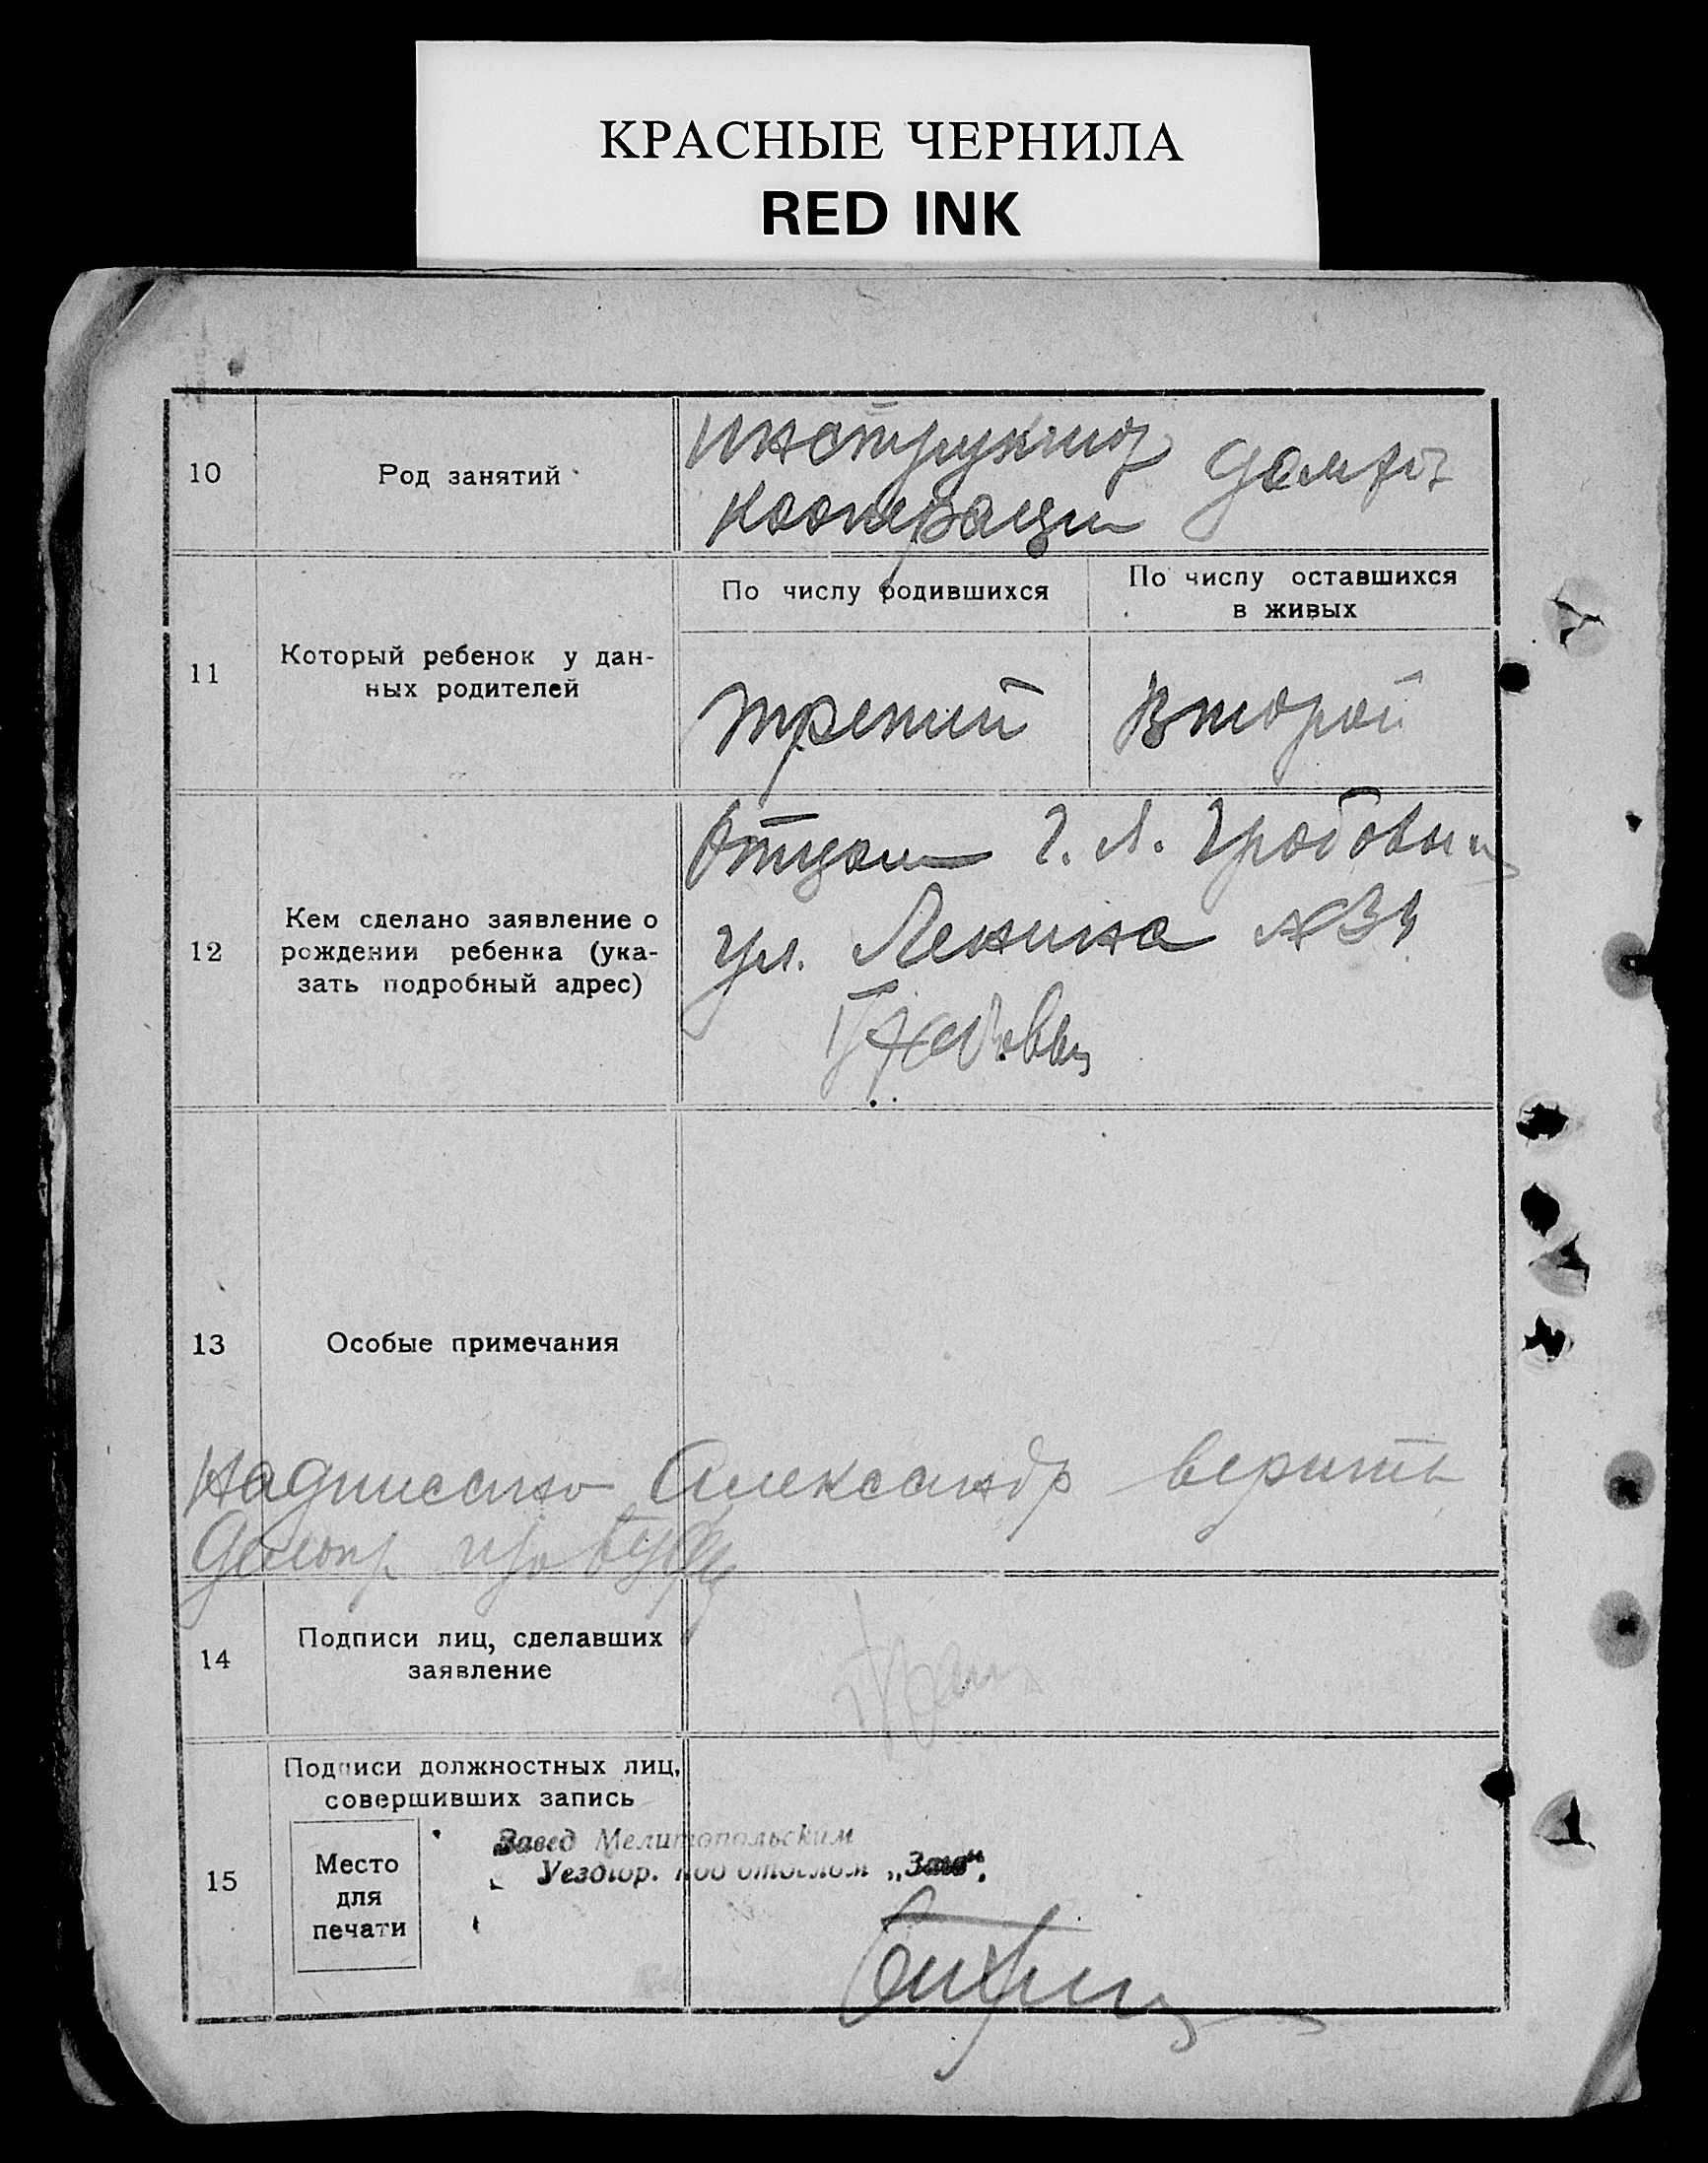 КРАСНЫЕ ЧЕРНИЛА
RED INK
10
Род занятий
инструктор
кооперации
11
Который ребенок у дан-
ных родителей
По числу родившихся
По числу оставшихся
в живых
третий
второй
12
Кем сделано заявление о
рождении ребенка (ука-
зать подробный адрес)
Отцом Г. Л.
ул. Ленина
13
Особые примечания
Надписано Александр верить
14
Подписи лиц, сделавших
заявление
15
Подписи должностных лиц,
совершивших запись
Место
для
печати
Завед Мелитопольским
Уездгор. под отделом „Загс“.